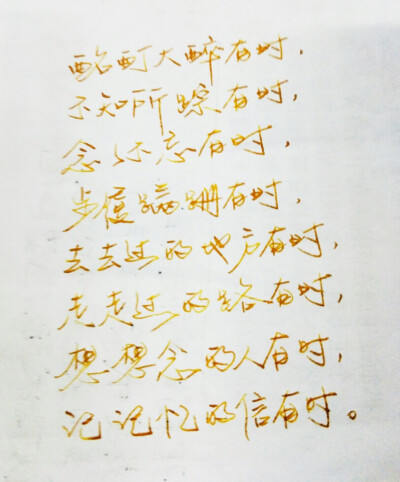 酩酊大醉有时，
不知所踪有时，
念念不忘有时，
步履蹒跚有时，
去去过的地方有时，
走走过的路有时，
想想念的人有时，
记记忆的信有时。